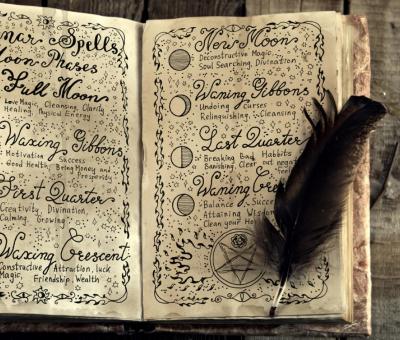 Lunar Spells
Moon Phases
Full Moon
Love Magic, Cleansing, Clarity
Healing, Physical Energy
Waxing Gibbons
Motivation Success
Good Health, Being Money and
Prosperity
First Quarter
Creativity Divination,
Calming, Growing
Waxing Crescent
Constructive Attraction, luck
Magic,
Friendship, Wealth
New Moon
Deconstructive Magic,
Soul Searching, Divination
Waning Gibbons
Undoing Curses
Relinquishing, Cleansing
Last Quarter
Breaking Bad Habits
Banishing, Clear out neg
Waning Cre
Balance Succe
Attaining Wisdom
Clean your Ho